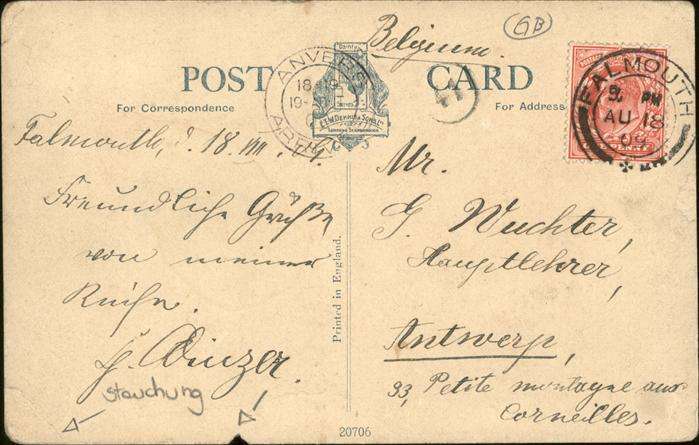 Belgium
GB
POST CARD
For Correspondence
For Address
ANVERS
18-19
19-
FALMOUTH
PM
AU 18
09
PENNY
Falmouth, d. 18. VIII. 09.
Freundliche Grüße
von meiner
Reise.
Stauchung
Printed in England.
Mr.
G. Wuchter,
Hauptlehrer,
Antwerp,
33, Petite montagne aux
Corneilles.
20706